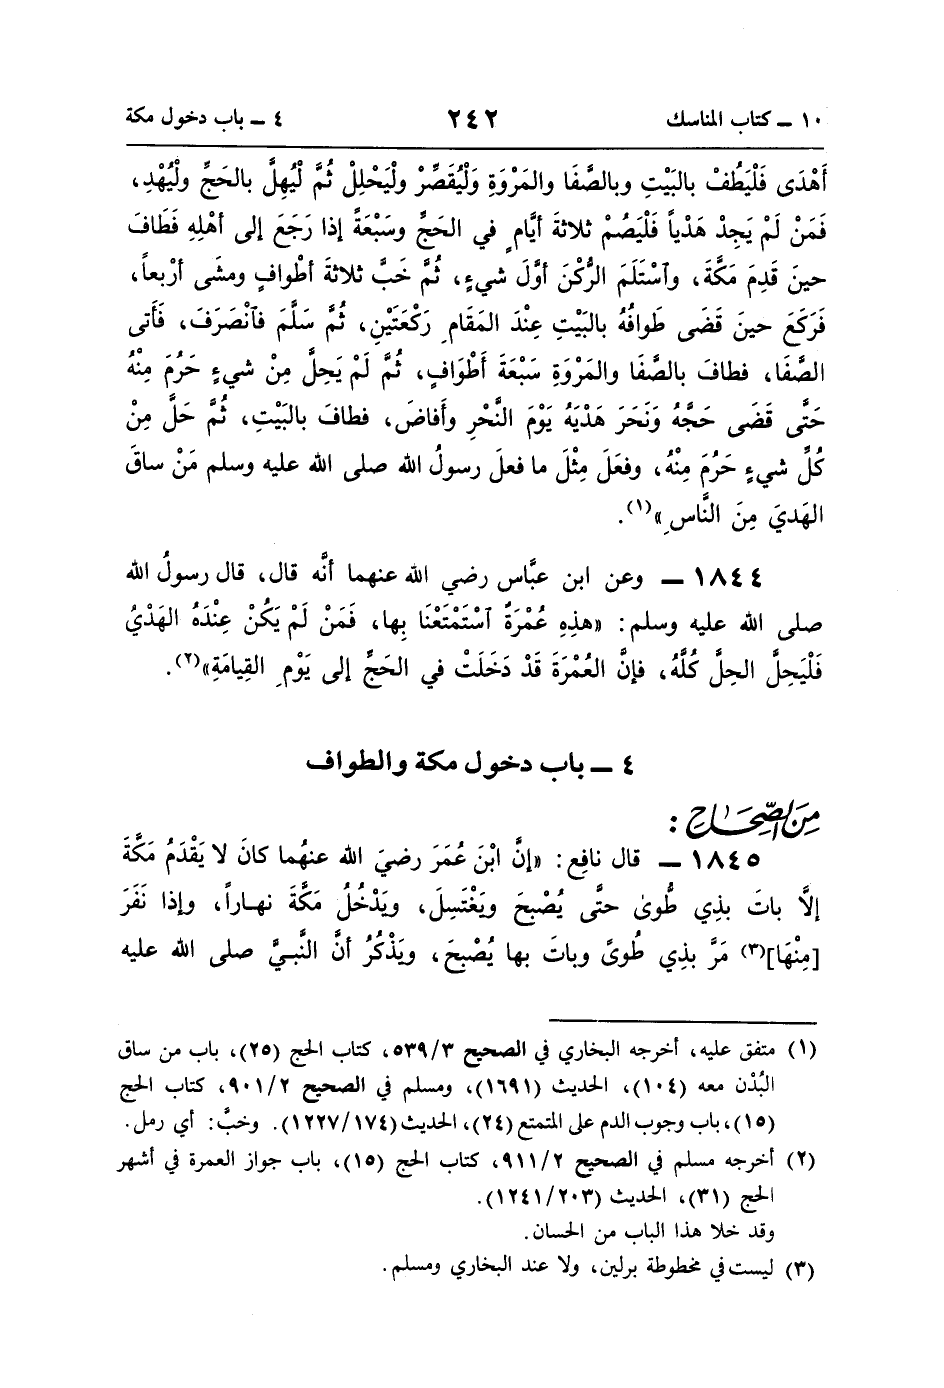 ١٠ ـ كتاب المناسك ٢٤٢ ٤ ـ باب دخول مكة
أَهْدَى فَلْيَطُفْ بالبَيْتِ وبالصَّفَا والمَرْوَةِ وَلْيُقَصِّرْ ولْيَحْلِلْ ثُمَّ لْيُهِلَّ بالحَجِّ ولْيُهْدِ،
فَمَنْ لَمْ يَجِدْ هَدْياً فَلْيَصُمْ ثلاثةَ أيَّامٍ في الحَجِّ وسَبْعَةً إذا رَجَعَ إلى أهْلِهِ فَطَافَ
حينَ قَدِمَ مَكَّةَ، وآسْتَلَمَ الرُّكْنَ أوَّلَ شيءٍ، ثُمَّ خَبَّ ثلاثةَ أطْوافٍ ومشَى أرْبعاً،
فَرَكَعَ حينَ قَضَى طَوافَهُ بالبَيْتِ عِنْدَ المَقامِ رَكْعَتَيْنِ، ثُمَّ سَلَّمَ فآنْصَرَفَ، فَأتى
الصَّفَا، فطافَ بالصَّفَا والمَرْوَةِ سَبْعَةَ أَطْوَافٍ، ثُمَّ لَمْ يَحِلَّ مِنْ شيءٍ حَرُمَ مِنْهُ
حَتَّى قَضَى حَجَّهُ وَنَحَرَ هَدْيَهُ يَوْمَ النَّحْرِ وأَفاضَ، فطافَ بالبَيْتِ، ثُمَّ حَلَّ مِنْ
كُلِّ شيءٍ حَرُمَ مِنْهُ، وفعَلَ مِثْلَ ما فعلَ رسولُ الله صلى الله عليه وسلم مَنْ ساقَ
الهَديَ مِنَ النَّاسِ»(١).
١٨٤٤ ـ وعن ابن عبَّاس رضي الله عنهما أنَّه قال، قال رسولُ الله
صلى الله عليه وسلم: «هذِهِ عُمْرَةٌ آسْتَمْتَعْنَا بِها، فَمَنْ لَمْ يَكُنْ عِنْدَهُ الهَدْيُ
فَلْيَحِلَّ الحِلَّ كُلَّهُ، فإنَّ العُمْرَةَ قَدْ دَخَلَتْ في الحَجِّ إلى يَوْمِ القِيامَةِ»(٢).
٤ ـ باب دخول مكة والطواف
مِنَ الصِّحَاحِ :
١٨٤٥ ـ قال نافِع: «إنَّ ابْنَ عُمَرَ رضيَ الله عنهُما كانَ لا يَقْدَمُ مَكَّةَ
إلَّا باتَ بذِي طُوىٰ حتَّى يُصْبِحَ ويَغْتَسِلَ، ويَدْخُلُ مَكَّةَ نهاراً، وإذا نَفَرَ
[مِنْهَا](٣) مَرَّ بذِي طُوىً وباتَ بها يُصْبحَ، ويَذْكُرُ أنَّ النَّبيَّ صلى الله عليه
(١) متفق عليه، أخرجه البخاري في الصحيح ٥٣٩/٣، كتاب الحج (٢٥)، باب من ساق
البُدْن معه (١٠٤)، الحديث (١٦٩١)، ومسلم في الصحيح ٩٠١/٢، كتاب الحج
(١٥)، باب وجوب الدم على المتمتع (٢٤)، الحديث (١٢٢٧/١٧٤). وخبَّ: أي رمل.
(٢) أخرجه مسلم في الصحيح ٩١١/٢، كتاب الحج (١٥)، باب جواز العمرة في أشهر
الحج (٣١)، الحديث (١٢٤١/٢٠٣).
وقد خلا هذا الباب من الحسان.
(٣) ليست في مخطوطة برلين، ولا عند البخاري ومسلم.